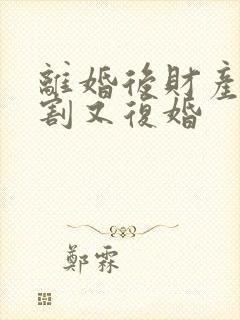 離婚後財產
割又復婚
鄭霖